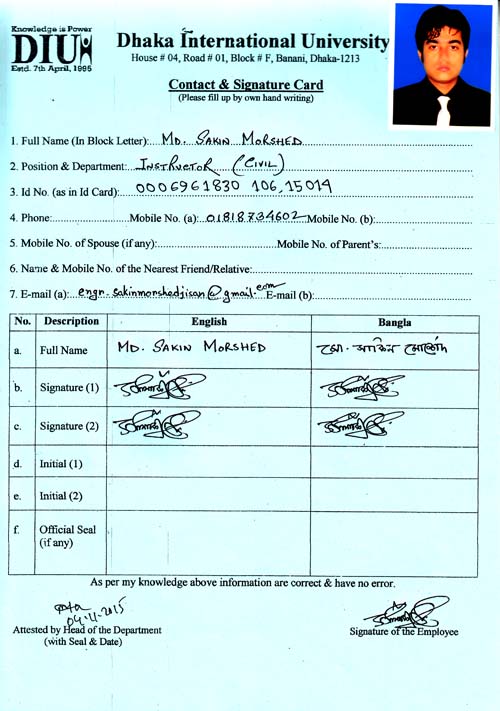 Knowledge is Power
DIU
Estd. 7th April, 1995
Dhaka International University
House # 04, Road # 01, Block # F, Banani, Dhaka-1213
Contact & Signature Card
(Please fill up by own hand writing)
1. Full Name (In Block Letter): MD. SAKIN MORSHED
2. Position & Department: INSTRUCTOR (CIVIL)
3. Id No. (as in Id Card): 0006961830 106,15014
4. Phone: Mobile No. (a): 01818734602 Mobile No. (b):
5. Mobile No. of Spouse (if any): Mobile No. of Parent's:
6. Name & Mobile No. of the Nearest Friend/Relative:
7. E-mail (a): engr.sakinmorshedjisan@gmail.com E-mail (b):
No. Description English Bangla
a. Full Name MD. SAKIN MORSHED মো. সাকিন মোর্শেদ
b. Signature (1)
c. Signature (2)
d. Initial (1)
e. Initial (2)
f. Official Seal
(if any)
As per my knowledge above information are correct & have no error.
04.11.2015
Attested by Head of the Department
(with Seal & Date)
Signature of the Employee